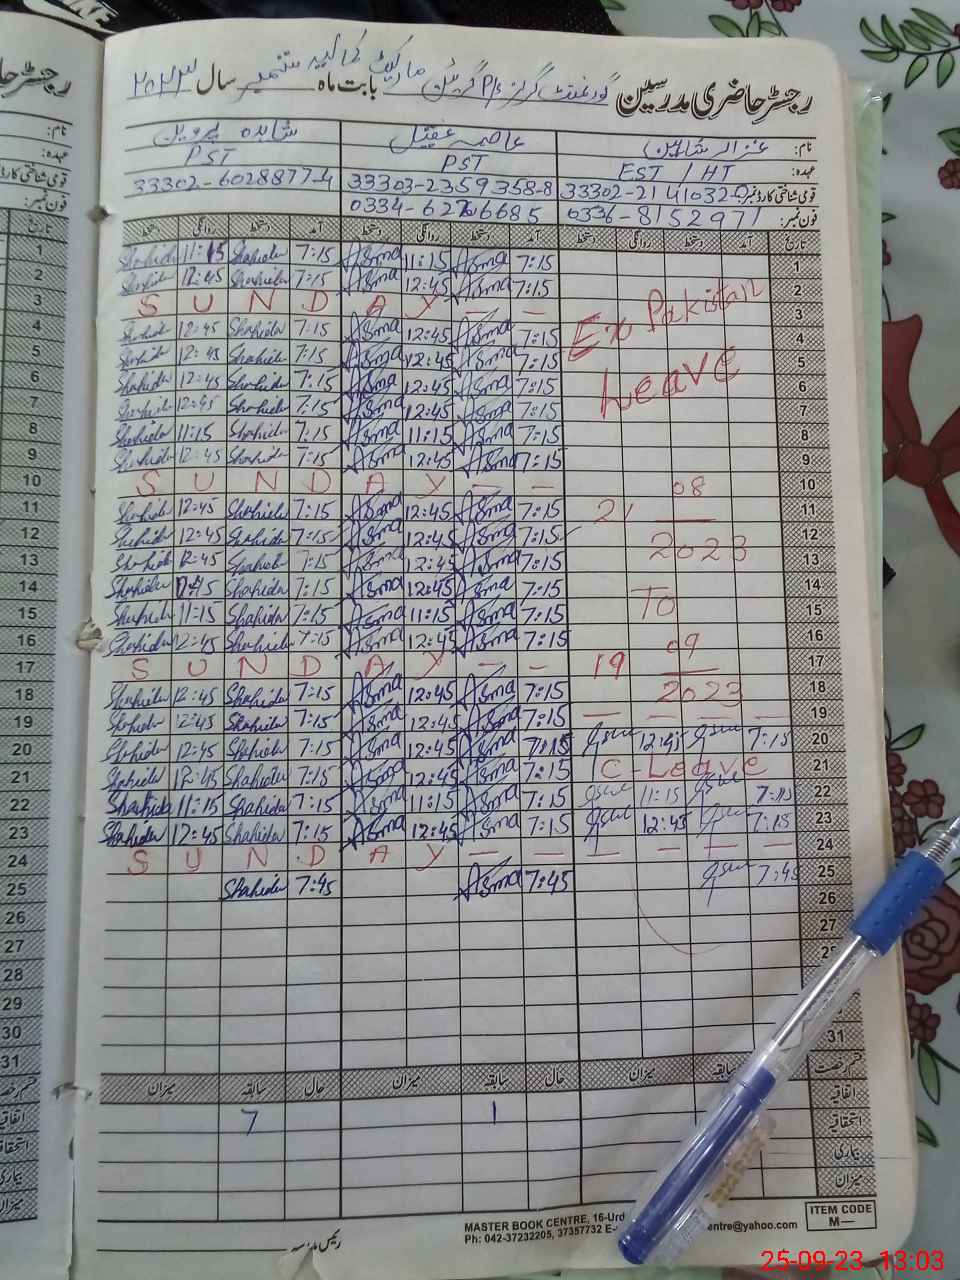 رجسٹر حاضری مدرسین گورنمنٹ گرلز P/S گرین مارکیٹ کمالیہ بابت ماہ ستمبر سال ۲۰۲۳
نام: غزالہ شاہین عاصمہ عقیل شاہدہ پروین
عہدہ: EST / HT PST PST
قومی شناختی کارڈ نمبر 33303-2359358-8 33302-6028877-4
فون نمبر: 0336-8152971
تاریخ آمد دستخط روانگی دستخط آمد دستخط روانگی دستخط آمد دستخط روانگی دستخط
1 Shahida 11:15 Shahida 7:15 Asma 11:15 Asma 7:15 1
2 Shahida 12:45 Shahida 7:15 Asma 12:45 Asma 7:15 2
3 S U N D A Y - - Ex Pakistan 3
4 Shahida 12:45 Shahida 7:15 Asma 12:45 Asma 7:15 4
5 Shahida 12:45 Shahida 7:15 Asma 12:45 Asma 7:15 Leave 5
6 Shahida 12:45 Shahida 7:15 Asma 12:45 Asma 7:15 6
7 Shahida 12:45 Shahida 7:15 Asma 12:45 Asma 7:15 7
8 Shahida 11:15 Shahida 7:15 Asma 11:15 Asma 7:15 8
9 Shahida 12:45 Shahida 7:15 Asma 12:45 Asma 7:15 9
10 S U N D A Y - - 08 10
11 Shahida 12:45 Shahida 7:15 Asma 12:45 Asma 7:15 21 11
12 Shahida 12:45 Shahida 7:15 Asma 12:45 Asma 7:15 2023 12
13 Shahida 12:45 Shahida 7:15 Asma 12:45 Asma 7:15 13
14 Shahida 12:45 Shahida 7:15 Asma 12:45 Asma 7:15 TO 14
15 Shahida 11:15 Shahida 7:15 Asma 11:15 Asma 7:15 15
16 Shahida 12:45 Shahida 7:15 Asma 12:45 Asma 7:15 09 16
17 S U N D A Y - - 19 17
18 Shahida 12:45 Shahida 7:15 Asma 12:45 Asma 7:15 2023 18
19 Shahida 12:45 Shahida 7:15 Asma 12:45 Asma 7:15 — — — — 19
20 Shahida 12:45 Shahida 7:15 Asma 12:45 Asma 7:15 12:45 7:15 20
21 Shahida 12:45 Shahida 7:15 Asma 12:45 Asma 7:15 1C-Leave 21
22 Shahida 11:15 Shahida 7:15 Asma 11:15 Asma 7:15 11:15 7:15 22
23 Shahida 12:45 Shahida 7:15 Asma 12:45 Asma 7:15 12:45 7:15 23
24 S U N D A Y - - — — — — 24
25 Shahida 7:45 Asma 7:45 7:45 25
26 26
27 27
28
29
30
31 31
قسم رخصت سابقہ میزان حال سابقہ میزان حال سابقہ میزان
اتفاقیہ 1 7
استحقاقیہ
بیماری
میزان
رئیس مدرسہ
MASTER BOOK CENTRE, 16-Urd
Ph: 042-37232205, 37357732 E- entre@yahoo.com
ITEM CODE
M—
25-09-23 13:03